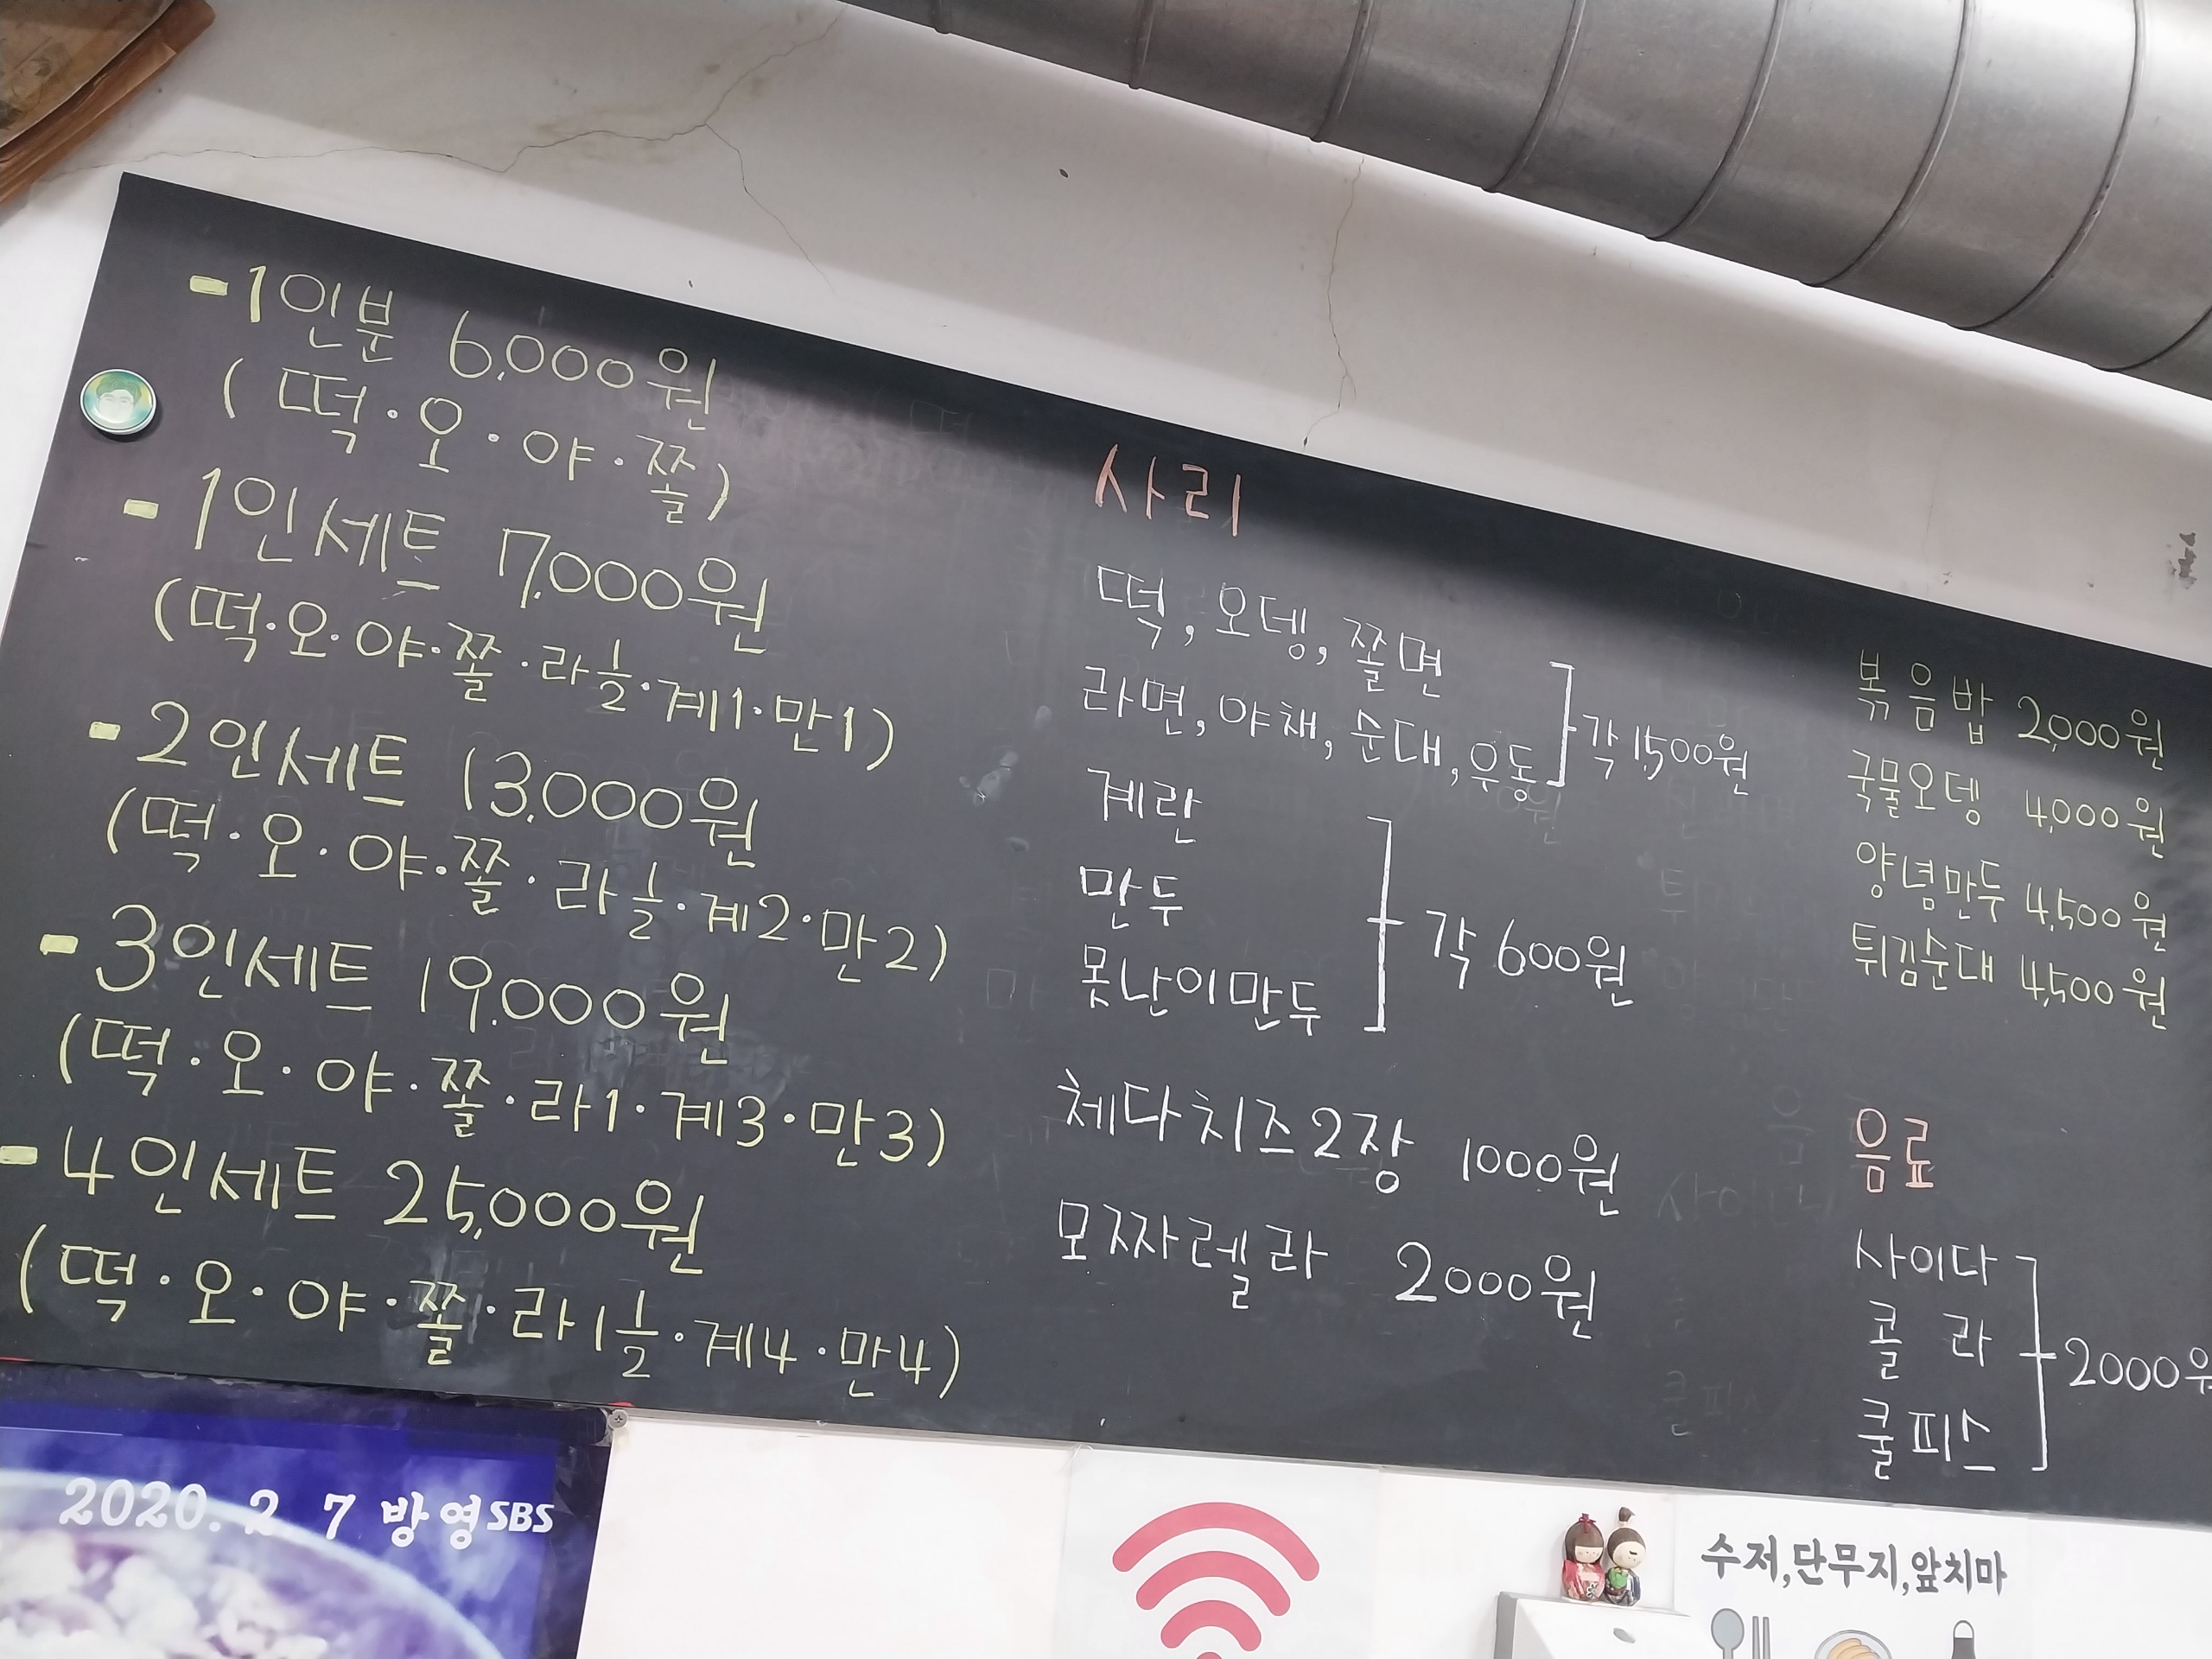 -1인분 6,000원
( 떡·오·야·쫄)
-1인세트 7,000원
(떡·오·야·쫄·라½·계1·만1)
-2인세트 13,000원
(떡·오·야·쫄·라½·계2·만2)
-3인세트 19,000원
(떡·오·야·쫄·라1·계3·만3)
-4인세트 25,000원
(떡·오·야·쫄·라1½·계4·만4)
사리
떡, 오뎅, 쫄면
라면, 야채, 순대, 우동
각 1,500원
계란
만두
못난이만두
각 600원
체다치즈2장 1000원
모짜렐라 2000원
볶음밥 2,000원
국물오뎅 4,000원
양념만두 4,500원
튀김순대 4,500원
음료
사이다
콜라
쿨피스
2000원
2020. 2. 7 방영SBS
수저,단무지,앞치마